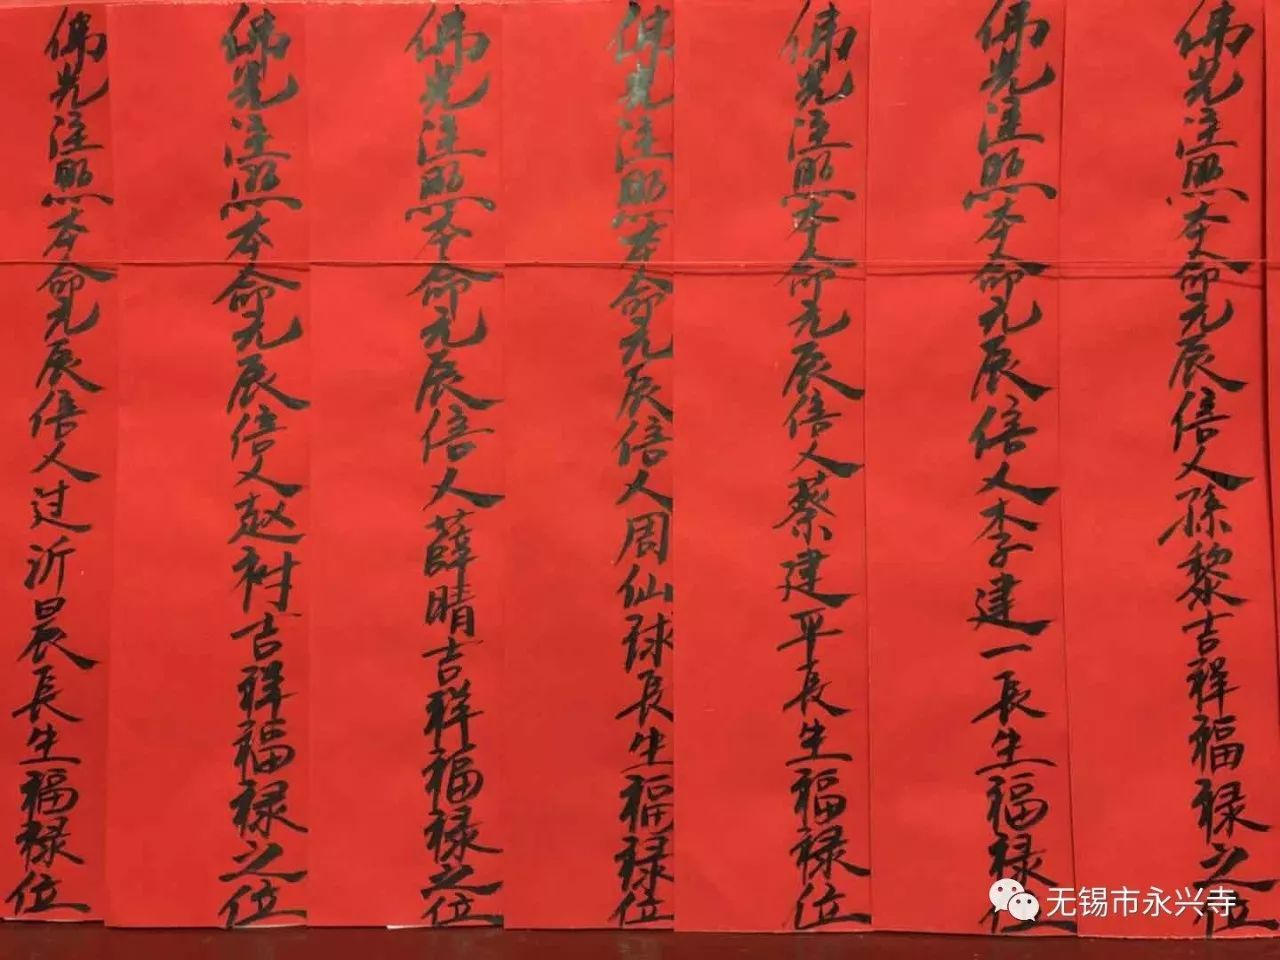 佛光注照本命元辰信人孫黎吉祥福禄之位
佛光注照本命元辰信人李建一長生福禄位
佛光注照本命元辰信人蔡建平長生福禄位
佛光注照本命元辰信人周仙球長生福禄位
佛光注照本命元辰信人薛晴吉祥福禄之位
佛光注照本命元辰信人赵衬吉祥福禄之位
佛光注照本命元辰信人过沂晨長生福禄位
无锡市永兴寺